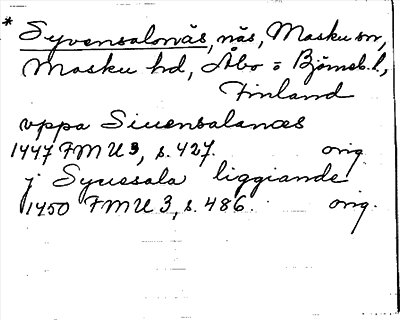 * Syvensalonäs, näs, Masku sn,
Masku hd, Åbo o Björneb. l,
Finland
vppa Siuensalanæs
1447 FMU 3, s. 427. orig
j Syuessala liggiande
1450 FMU 3, s. 486. orig.